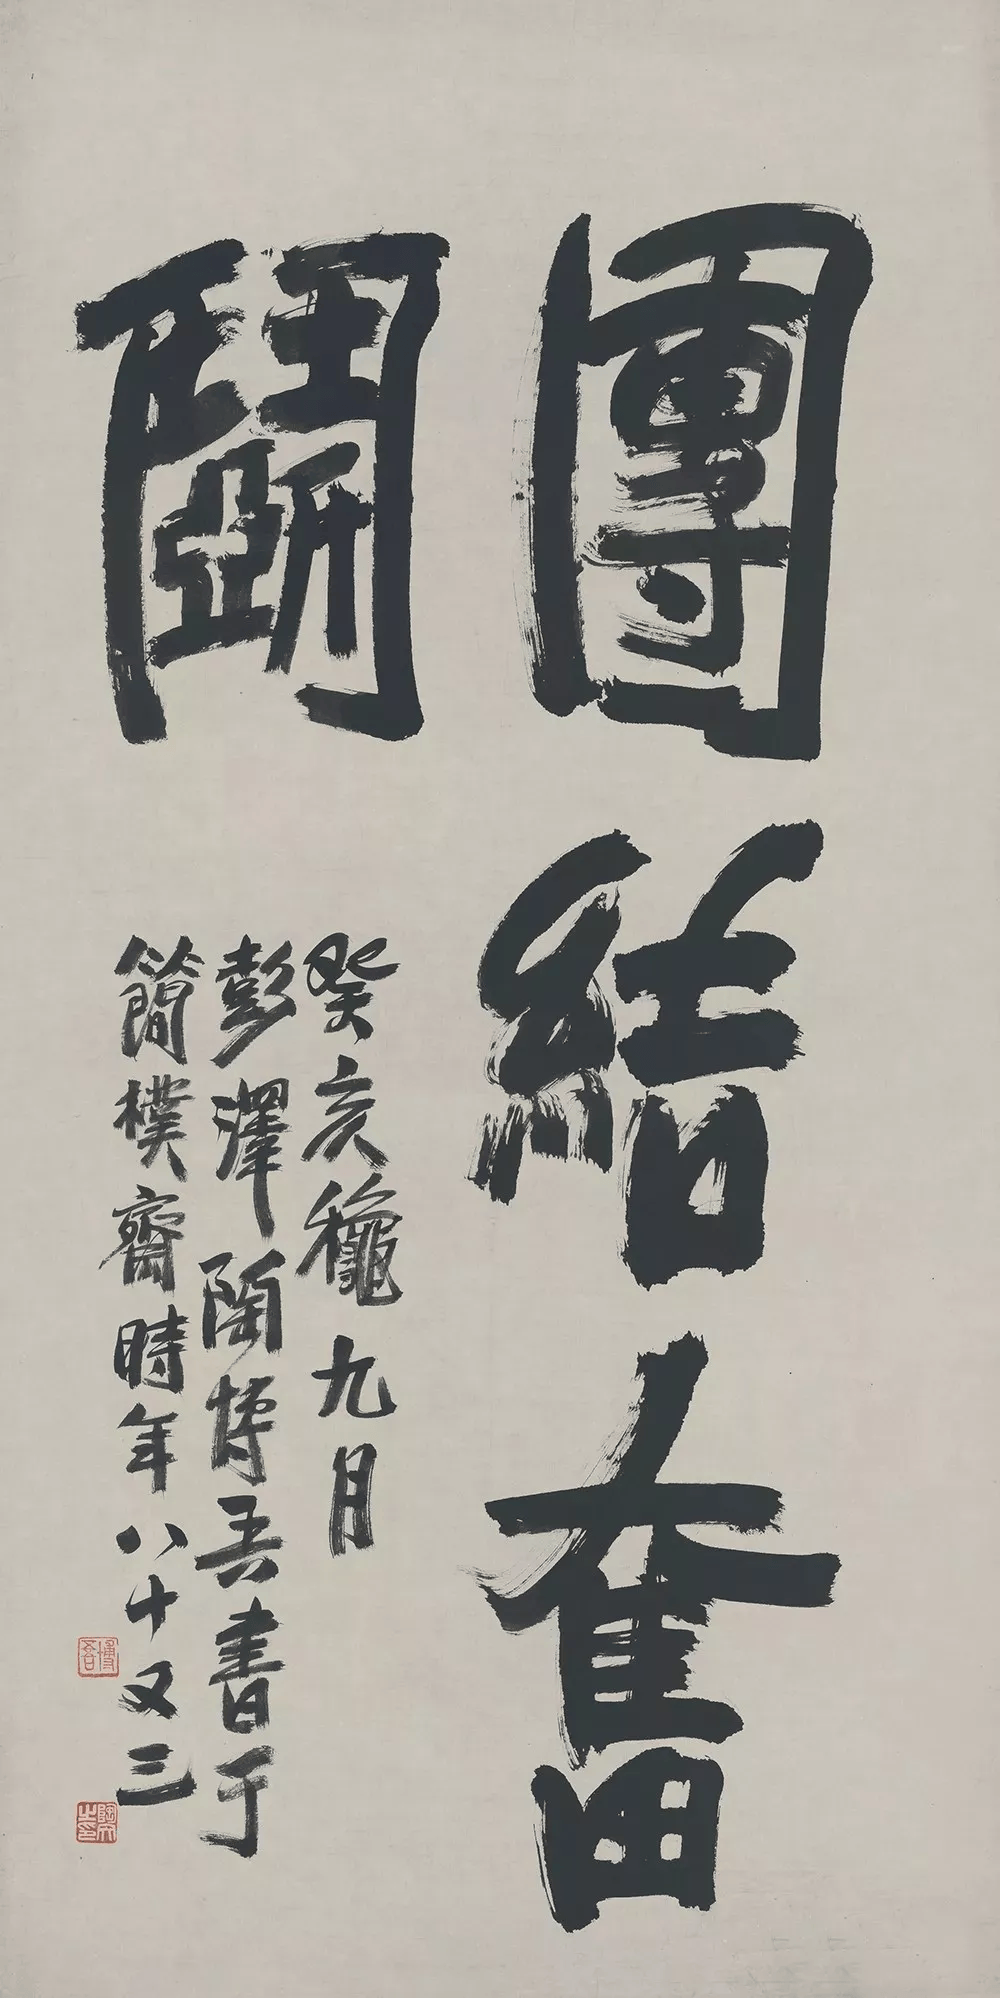 團結奮
鬭
癸亥穐九月
彭澤陶博吾書于
簡樸齋時年八十又三
博吾